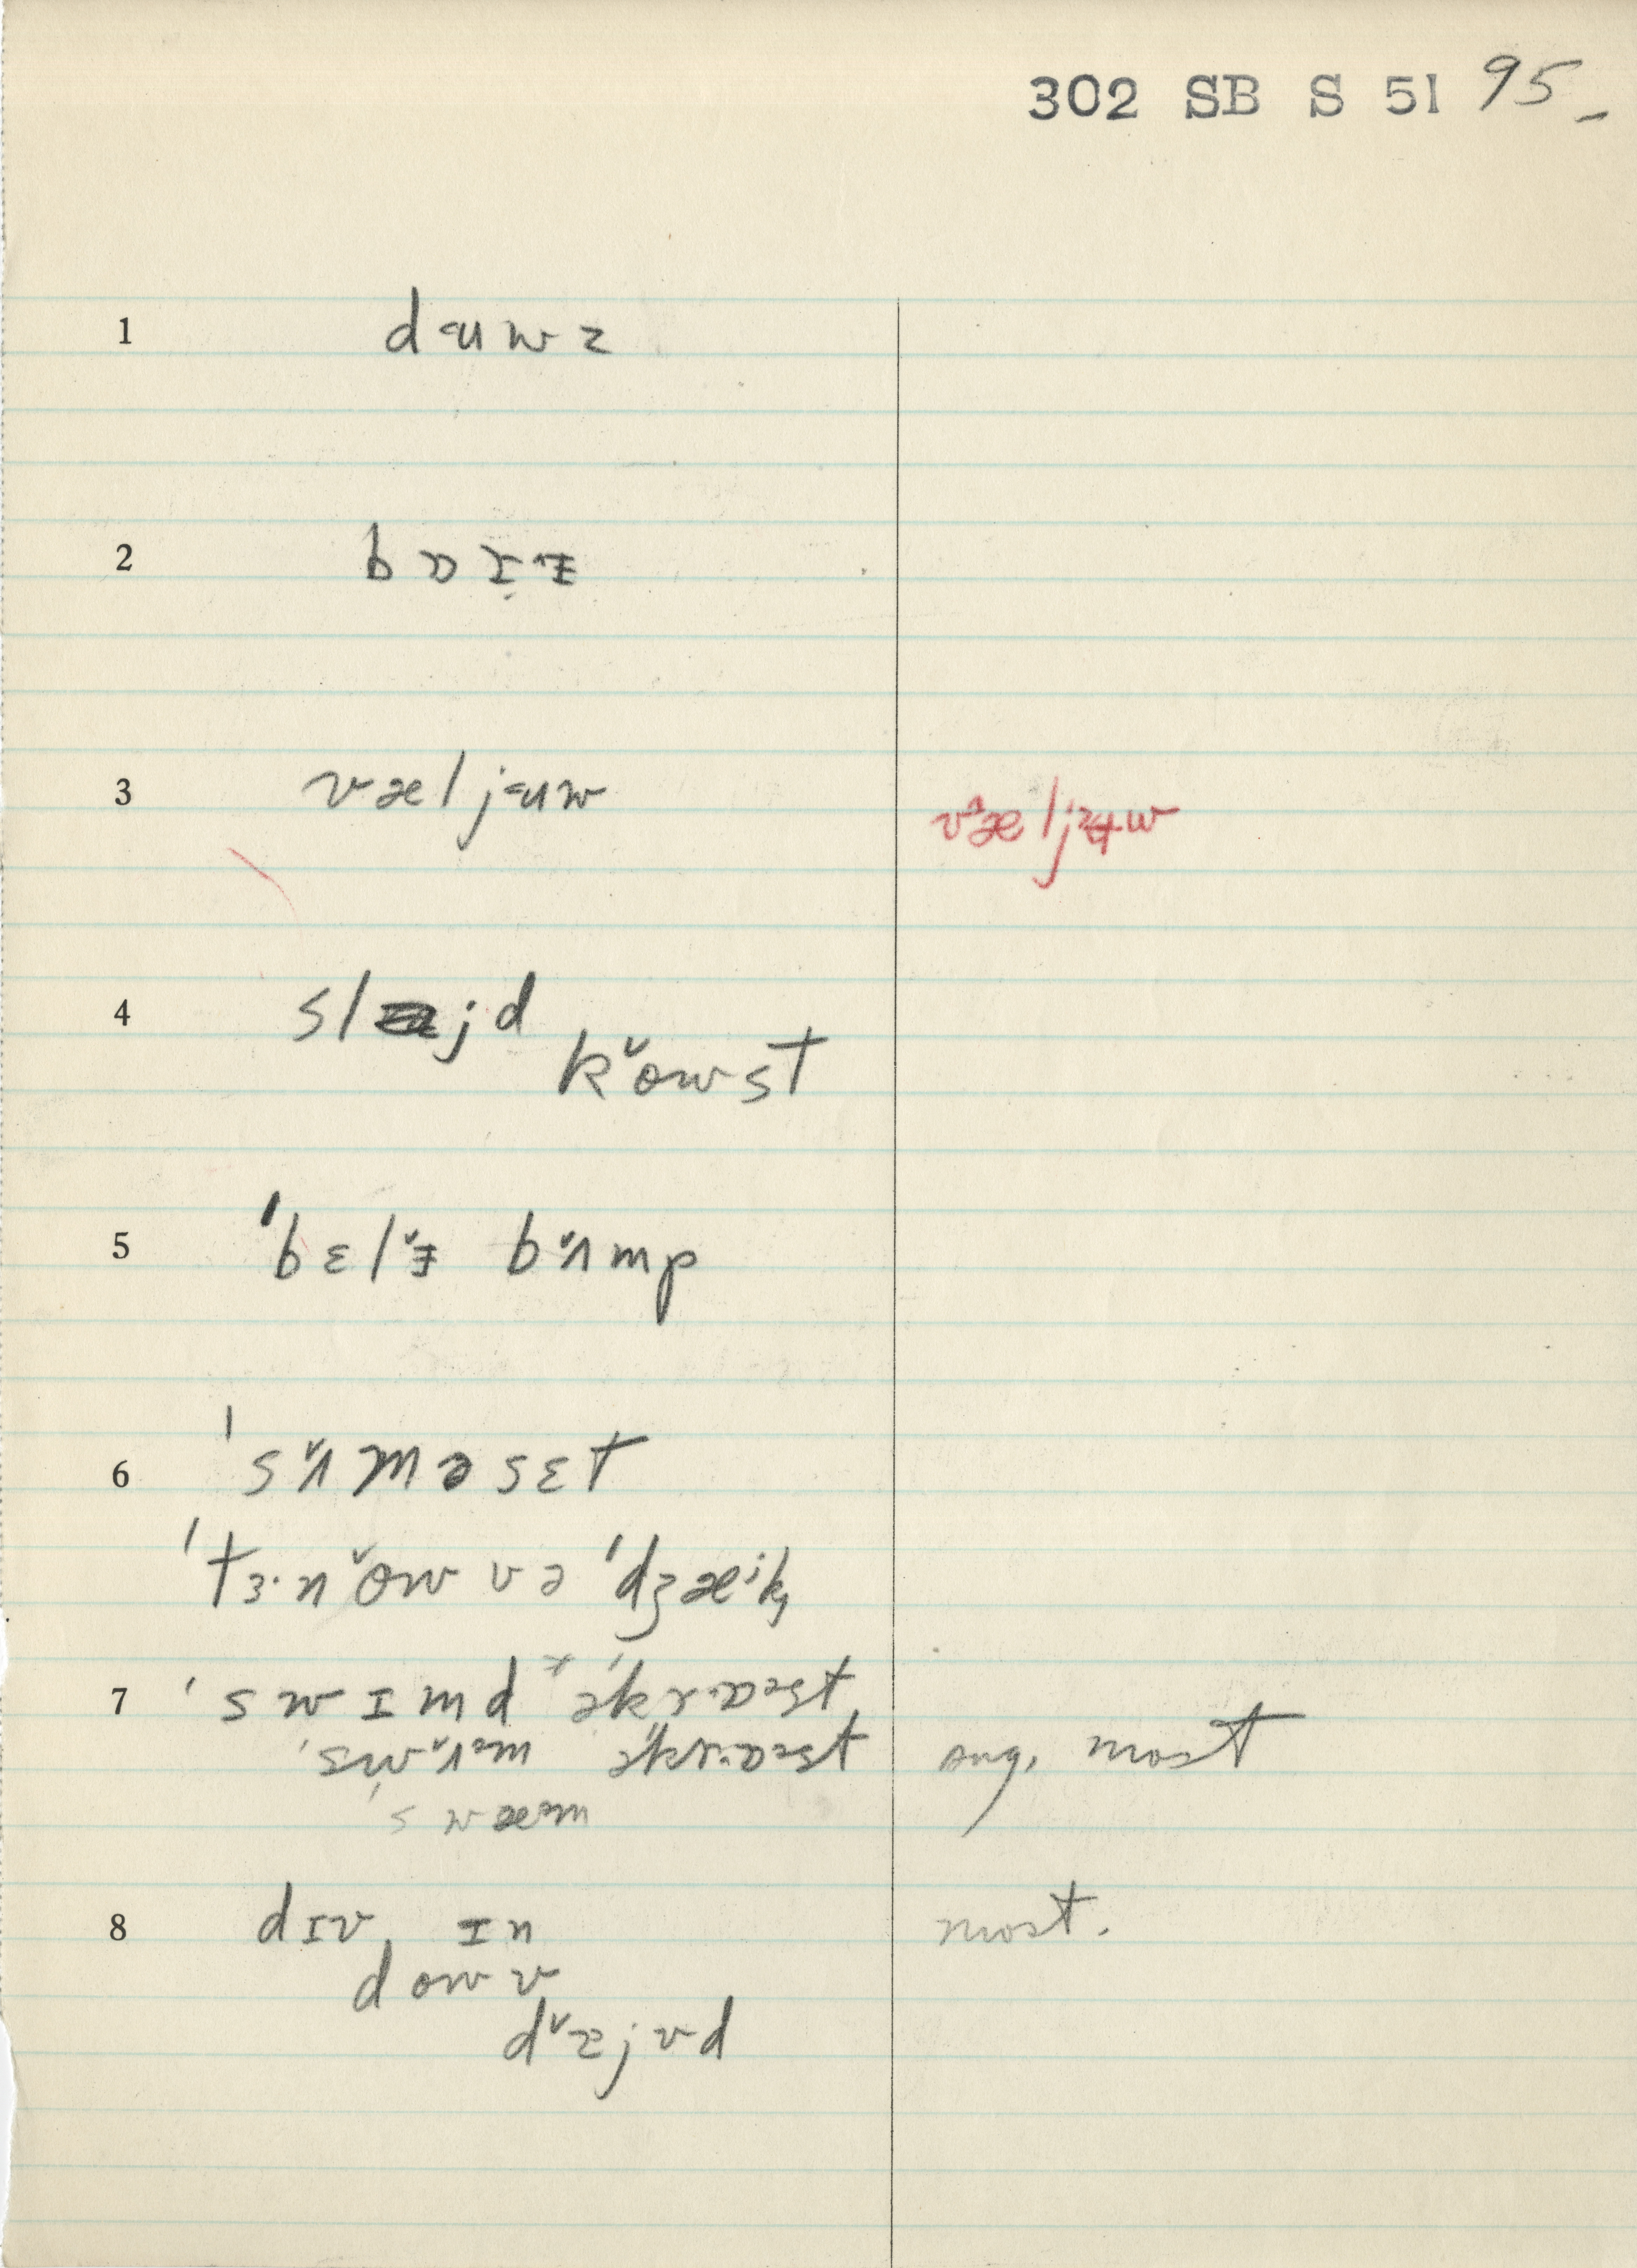 302 SB S 51 95
1 d᷵uwz
2 bɒɪ̣ᵻz
3 væljuw væljʉw
4 sl jd
k˅owst
5 ˈbɛl˅ɨ b˅ʌmp
6 ˈs˅ʌməsɛt
ˈtɜ·n˅ow və ˈdʒæⁱk,
7 ˈswɪmd əˈkrɒst,
ˈsw˅ʌm əˈkrɒst sug. most
ˈswæm
8 dɪv, ɪn most.
dowv
d˅ɪjvd